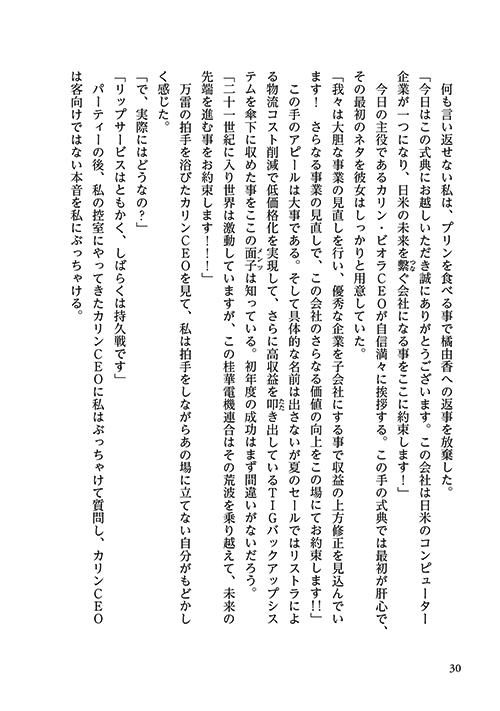 何も言い返せない私は、プリンを食べる事で橘由香への返事を放棄した。
「今日はこの式典にお越しいただき誠にありがとうございます。この会社は日米のコンピューター
企業が一つになり、日米の未来を繋ぐ会社になる事をここに約束します！」
今日の主役であるカリン・ビオラCEOが自信満々に挨拶する。この手の式典では最初が肝心で、
その最初のネタを彼女はしっかりと用意していた。
「我々は大胆な事業の見直しを行い、優秀な企業を子会社にする事で収益の上方修正を見込んでい
ます！　さらなる事業の見直しで、この会社のさらなる価値の向上をこの場にてお約束します!!」
この手のアピールは大事である。そして具体的な名前は出さないが夏のセールではリストラによ
る物流コスト削減で低価格化を実現して、さらに高収益を叩き出しているTIGバックアップシス
テムを傘下に収めた事をここの面子は知っている。初年度の成功はまず間違いがないだろう。
「二十一世紀に入り世界は激動していますが、この桂華電機連合はその荒波を乗り越えて、未来の
先端を進む事をお約束します！！！」
万雷の拍手を浴びたカリンCEOを見て、私は拍手をしながらあの場に立てない自分がもどかし
く感じた。
「で、実際にはどうなの？」
「リップサービスはともかく、しばらくは持久戦です」
パーティーの後、私の控室にやってきたカリンCEOに私はぶっちゃけて質問し、カリンCEO
は客向けではない本音を私にぶっちゃける。
30